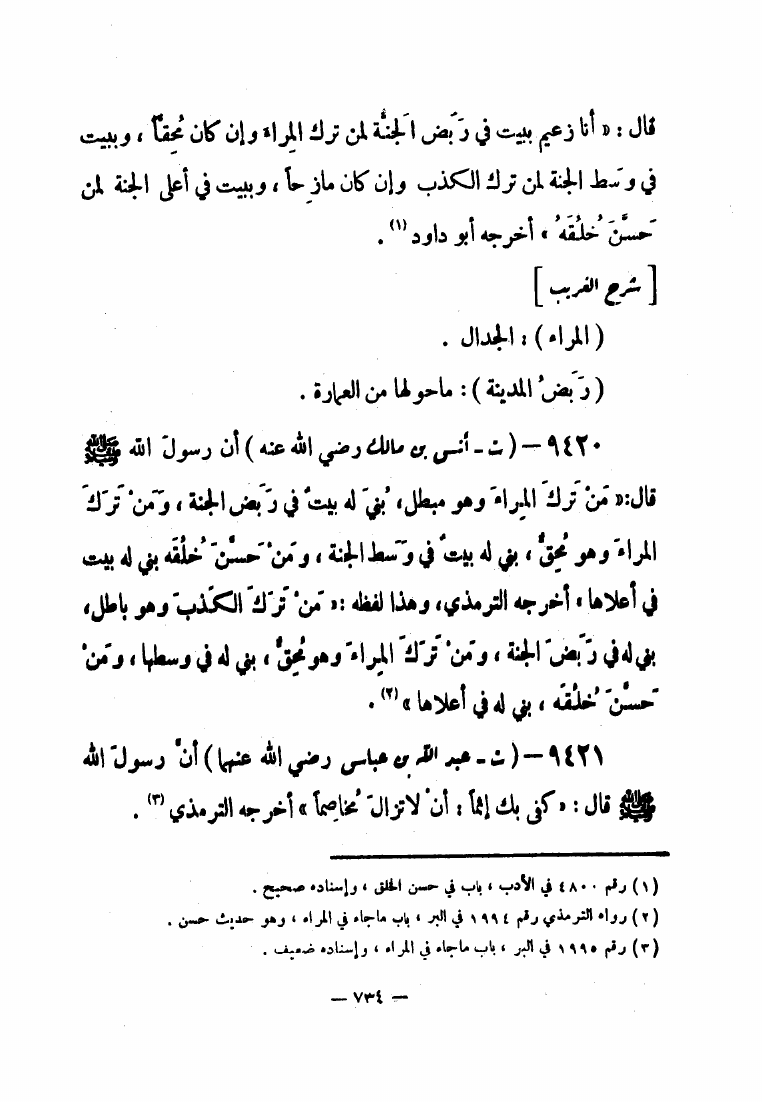 قال : « أنا زعيم ببيت في رَبَض الجنَّة لمن ترك المِراءَ وإن كان مُحِقّاً ، وببيت
في وسَط الجنة لمن ترك الكذب وإن كان مازِحاً ، وببيت في أعلى الجنة لمن
حَسَّنَ خُلُقَهُ » أخرجه أبو داود (١) .
[ شرح الغريب ]
( المراء ) : الجدال .
( رَبَضُ المدينة ) : ماحولها من العمارة .
٩٤٢٠ – ( ت ـ أنس بن مالك رضي الله عنه ) أن رسولَ الله ﷺ
قال: « مَنْ تَركَ المِراءَ وهو مبطل، بُنيَ له بيتٌ في رَبَض الجنة ، ومَنْ تَرَكَ
المراءَ وهو مُحِقٌّ ، بني له بيتٌ في وَسَط الجنة ، ومَنْ حَسَّنَ خُلُقَه بني له بيت
في أعلاها » أخرجه الترمذي، وهذا لفظه : « مَنْ تَرَكَ الكَذبَ وهو باطل،
بني له في رَبَضَ الجنة ، ومَنْ تَرَكَ المِراءَ وهو مُحِقٌّ ، بني له في وسطها ، ومَنْ
حَسَّنَ خُلُقَه ، بني له في أعلاها » (٢) .
٩٤٢١ – ( ت ـ عبد الله بن عباس رضي الله عنهما ) أنَّ رسولَ الله
ﷺ قال : « كفى بك إثماً : أنْ لاتزالَ مُخاصِماً » أخرجه الترمذي (٣) .
(١) رقم ٤٨٠٠ في الأدب ، باب في حسن الخلق ، وإسناده صحيح .
(٢) رواه الترمذي رقم ١٩٩٤ في البر ، باب ماجاء في المراء ، وهو حديث حسن .
(٣) رقم ١٩٩٥ في البر ، باب ماجاء في المراء ، وإسناده ضعيف .
— ٧٣٤ —